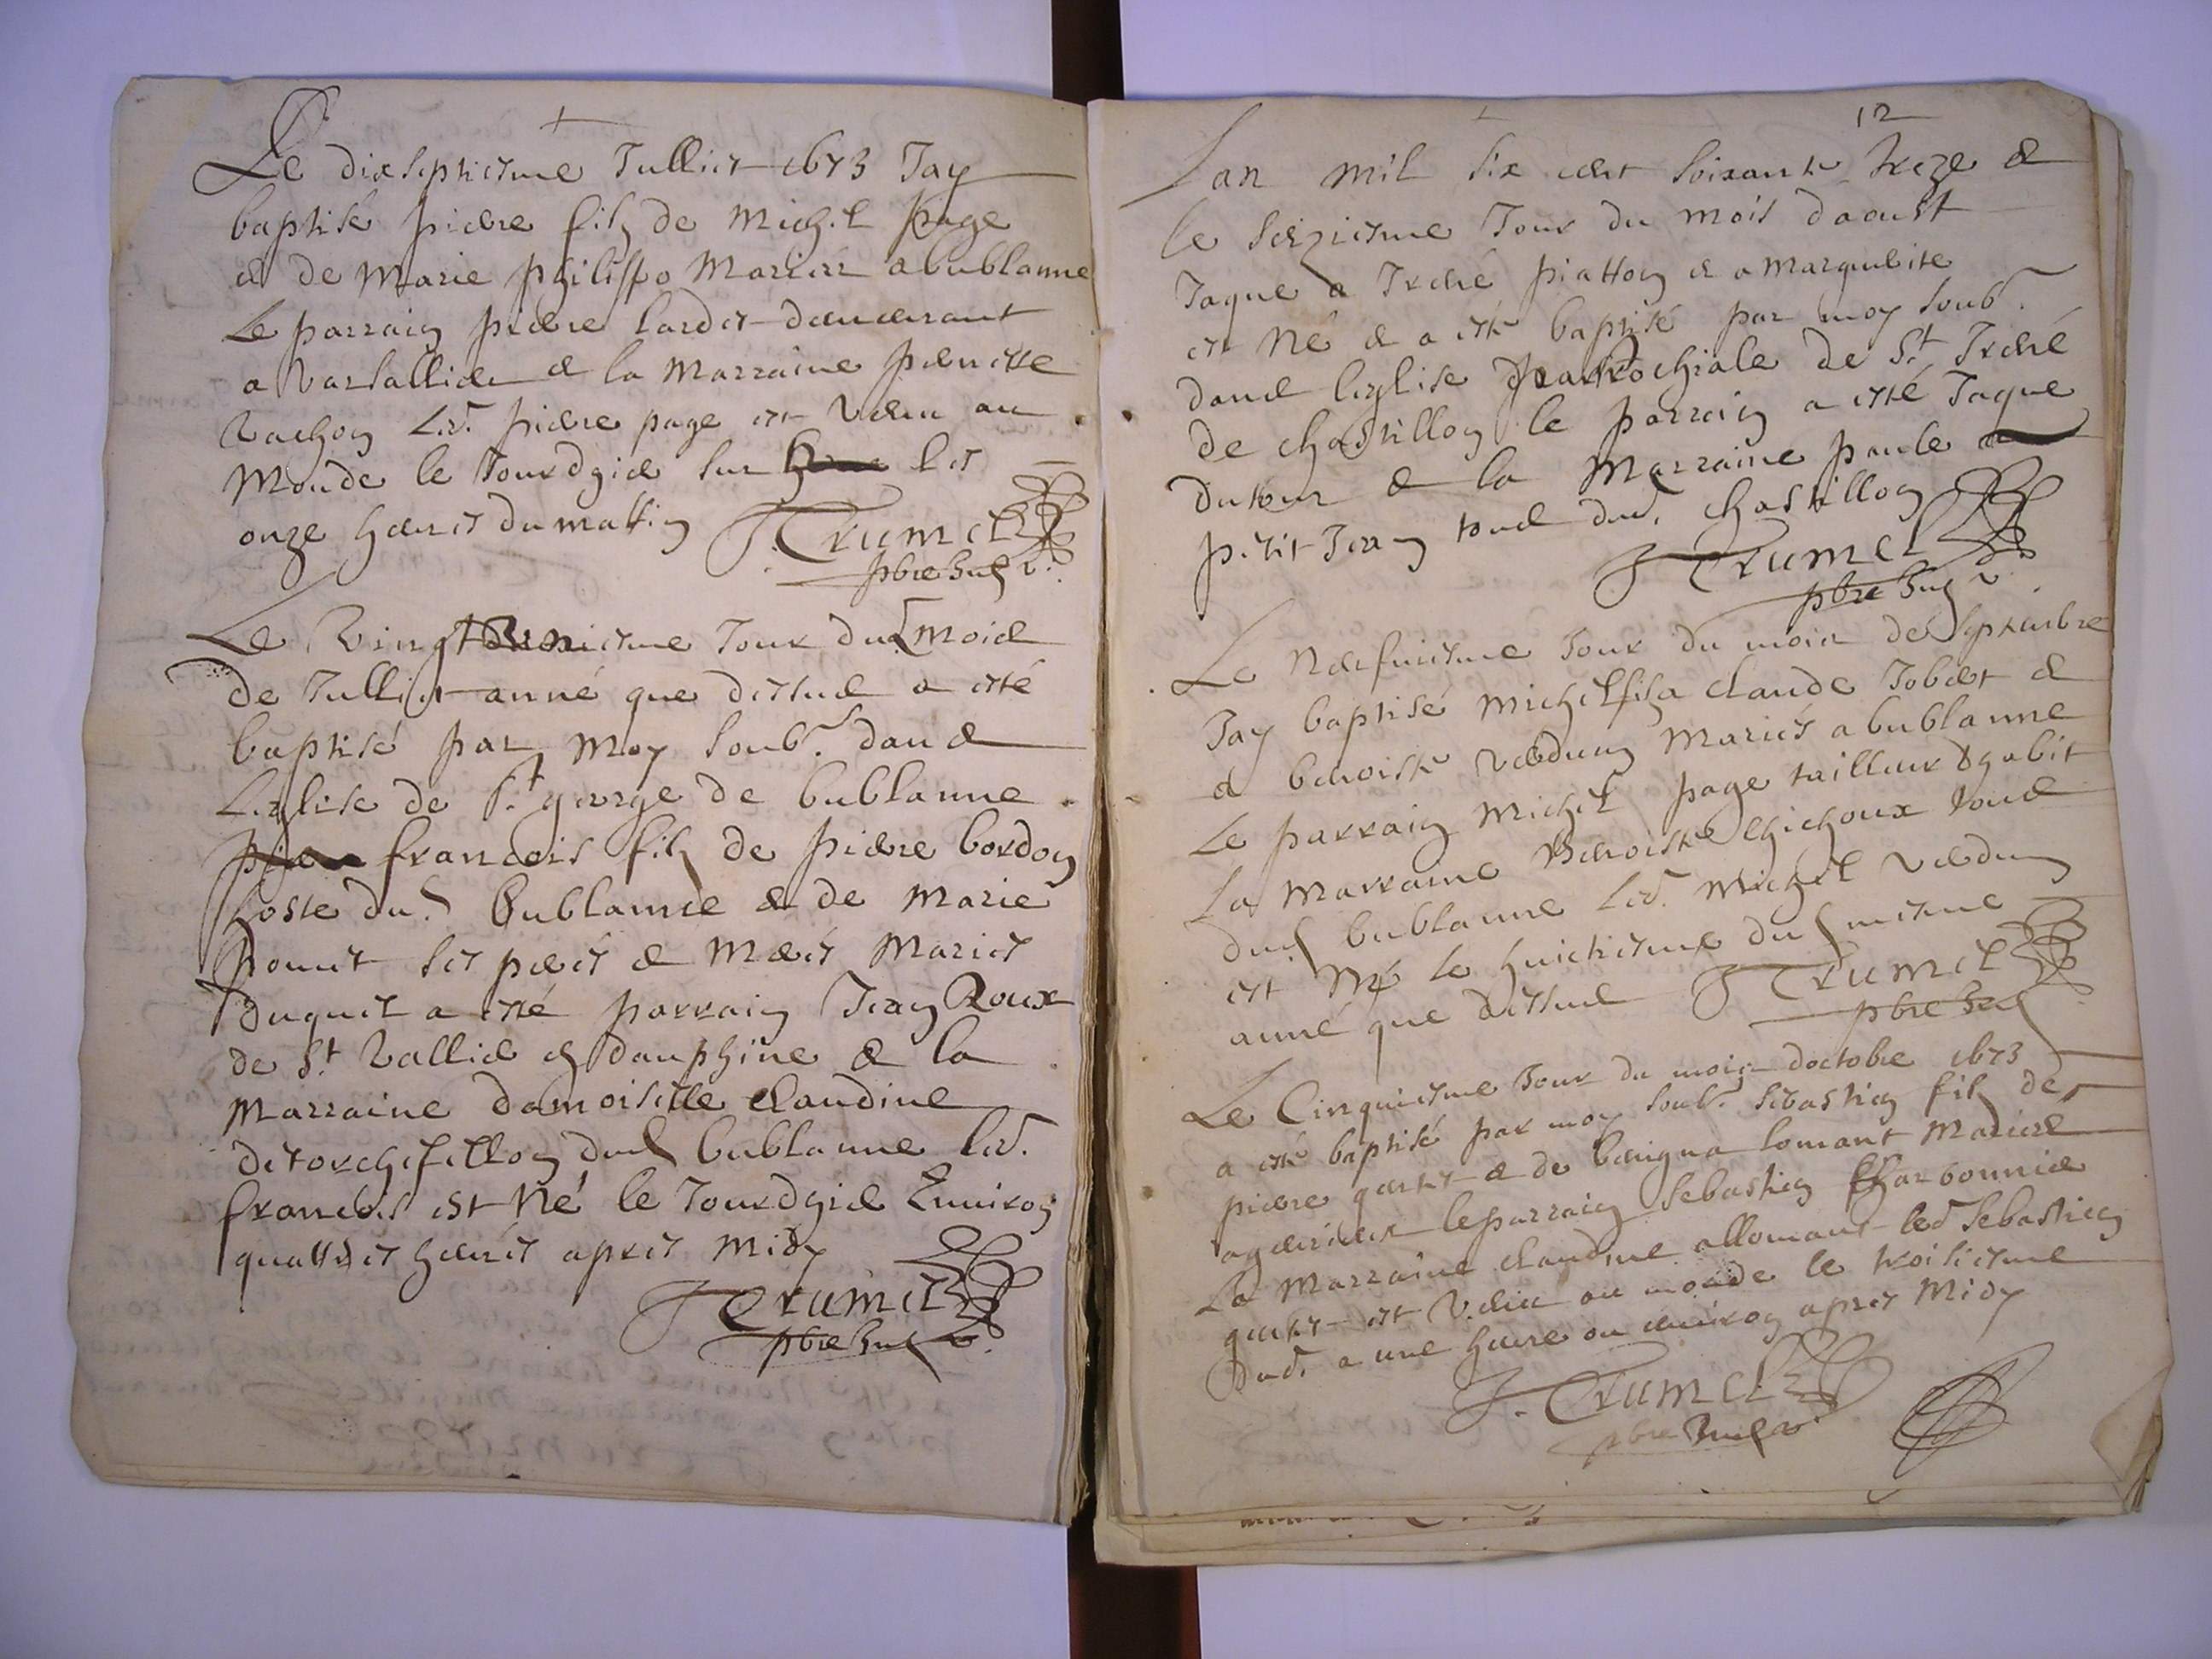 Le dixseptiesme Julliet 1673 Jay
baptisé pierre filz de Michel page
et de Marie philippo Mariez a bublanne
Le parrain pierre lardet demeurant
a Varsallieu et la Marraine pernette
Vachon Led. pierre page est Venu au
Monde le Jourdhier sur les
onze heures du mattin J. Trumel
pbre
Le Vingt Jour dud moies
de Julliet anné que dessus a esté
baptisé par Moy soub. dans
Leglise de St george de bublanne
francois filz de pierre bordon
hoste dud. bublanne et de Marie
ses peres et Meres Maries
duquel a esté parrain Jean Roux
de St Vallier en dauphine et la
Marraine damoiselle claudine
detorchefellon dud bublanne led.
francois est Né le Jourdhier Environ
quattres heures apres Midy
J Trumel
pbre
12
Lan mil six cent soixante treze et
le seiziesme Jour du mois daoust
Jaque a Irené piatton et a Marguerite
est Né et a esté baptisé par moy soub.
dans leglise parrochiale de St Irené
de chastillon le parrain a esté Jaque
duteur et la Marraine paule
petit Jean tous dud. chastillon
J Trumel
pbre
Le Neufuiesme Jour du mois de Septembre
Jay baptisé Michel filz a claude Jobert et
a benoiste Verdun Mariés a bublanne
Le parrain Michel page tailleur dhabit
La Marraine Benoiste Chichoux tous
dud bublanne led. Michel Verdun
est Né le huictiesme dud mesme
anné que dessus J Trumel
pbre
Le Cinquiesme Jour du mois doctobre 1673
a esté baptisé par moy soub. sebastien filz de
pierre et de lomant Mariez
le parrain Sebastien Charbonnier
La Marraine claudine allomant led Sebastien
est Venu au monde le troisiesme
dud. a une heure ou environ apres Midy
J. Trumel
pbre